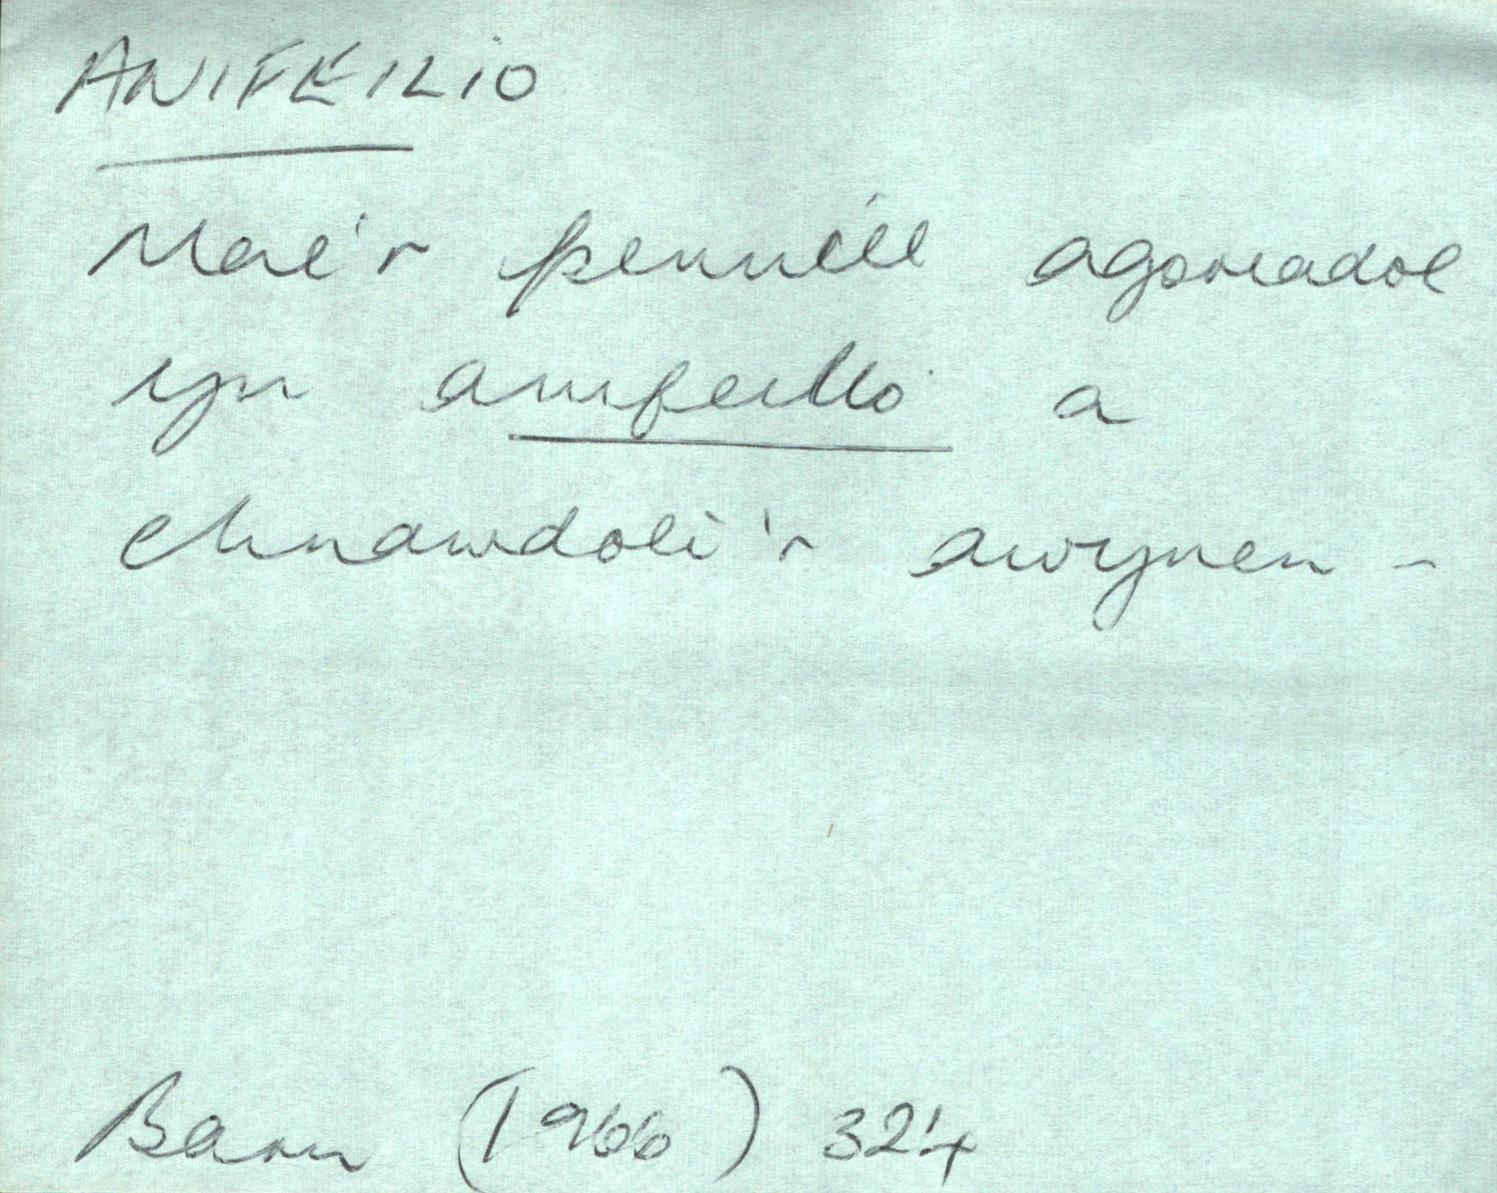 ANIFEILIO
Mae'r pennill agoriadol
yn anifeilio a
chnawdoli'r awynen -
Barn (1966) 324